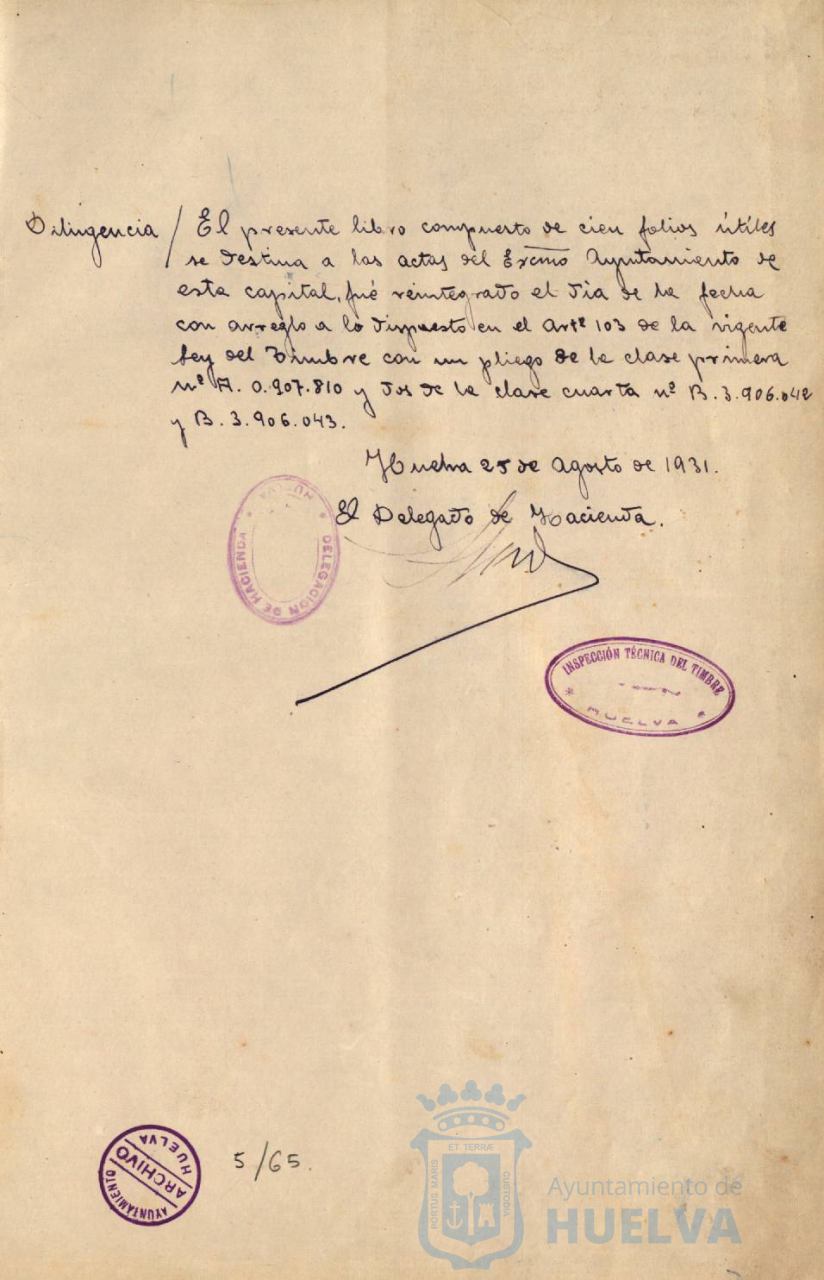 Diligencia / El presente libro compuesto de cien folios útiles
se destina a las actas del Excmo Ayuntamiento de
esta capital, fué reintegrado el dia de la fecha
con arreglo a lo dispuesto en el Artº 103 de la vigente
Ley del Timbre con un pliego de la clase primera
nº A. 0.907.810 y dos de la clase cuarta nº B. 3.906.042
y B. 3.906.043.
Huelva 25 de Agosto de 1931.
El Delegado de Hacienda.
DELEGACION DE HACIENDA * HUELVA *
INSPECCIÓN TÉCNICA DEL TIMBRE
* HUELVA *
AYUNTAMIENTO
ARCHIVO
HUELVA
5/65.
PORTUS MARIS ET TERRÆ CUSTODIA
Ayuntamiento de
HUELVA